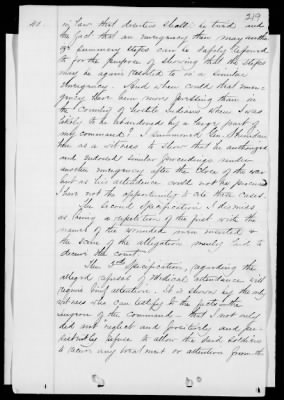 41. 219
in law that deserters shall be tried and
the fact that an emergency then may author-
ize summary steps can be safely referred
to for the purpose of showing that the steps
may be again resorted to in a similar
emergency. And when could that emer-
gency have been more pressing than in
the Country of hostile Indians when I was
likely to be abandoned by a large part of
my command? I summoned Gen. Sheridan
here as a witness to show that he authorized
and ordered similar proceedings under
another emergency after the close of the war
but as his attendance could not be procured
I have not the opportunity to use these cases.
The second Specification I dismiss
as being a repetition of the first with the
names of the wounded men inserted &
the scene of the allegation merely laid to
deceive the court.
The 3rd Specification, regarding the
alleged refusal of Medical attendance will
require brief attention. It is shown by the only
witness who can testify to the facts the
surgeon of the command — that I not only
did not neglect and positively and per-
sistently refuse to allow the said soldiers
to receive any treatment or attention from the